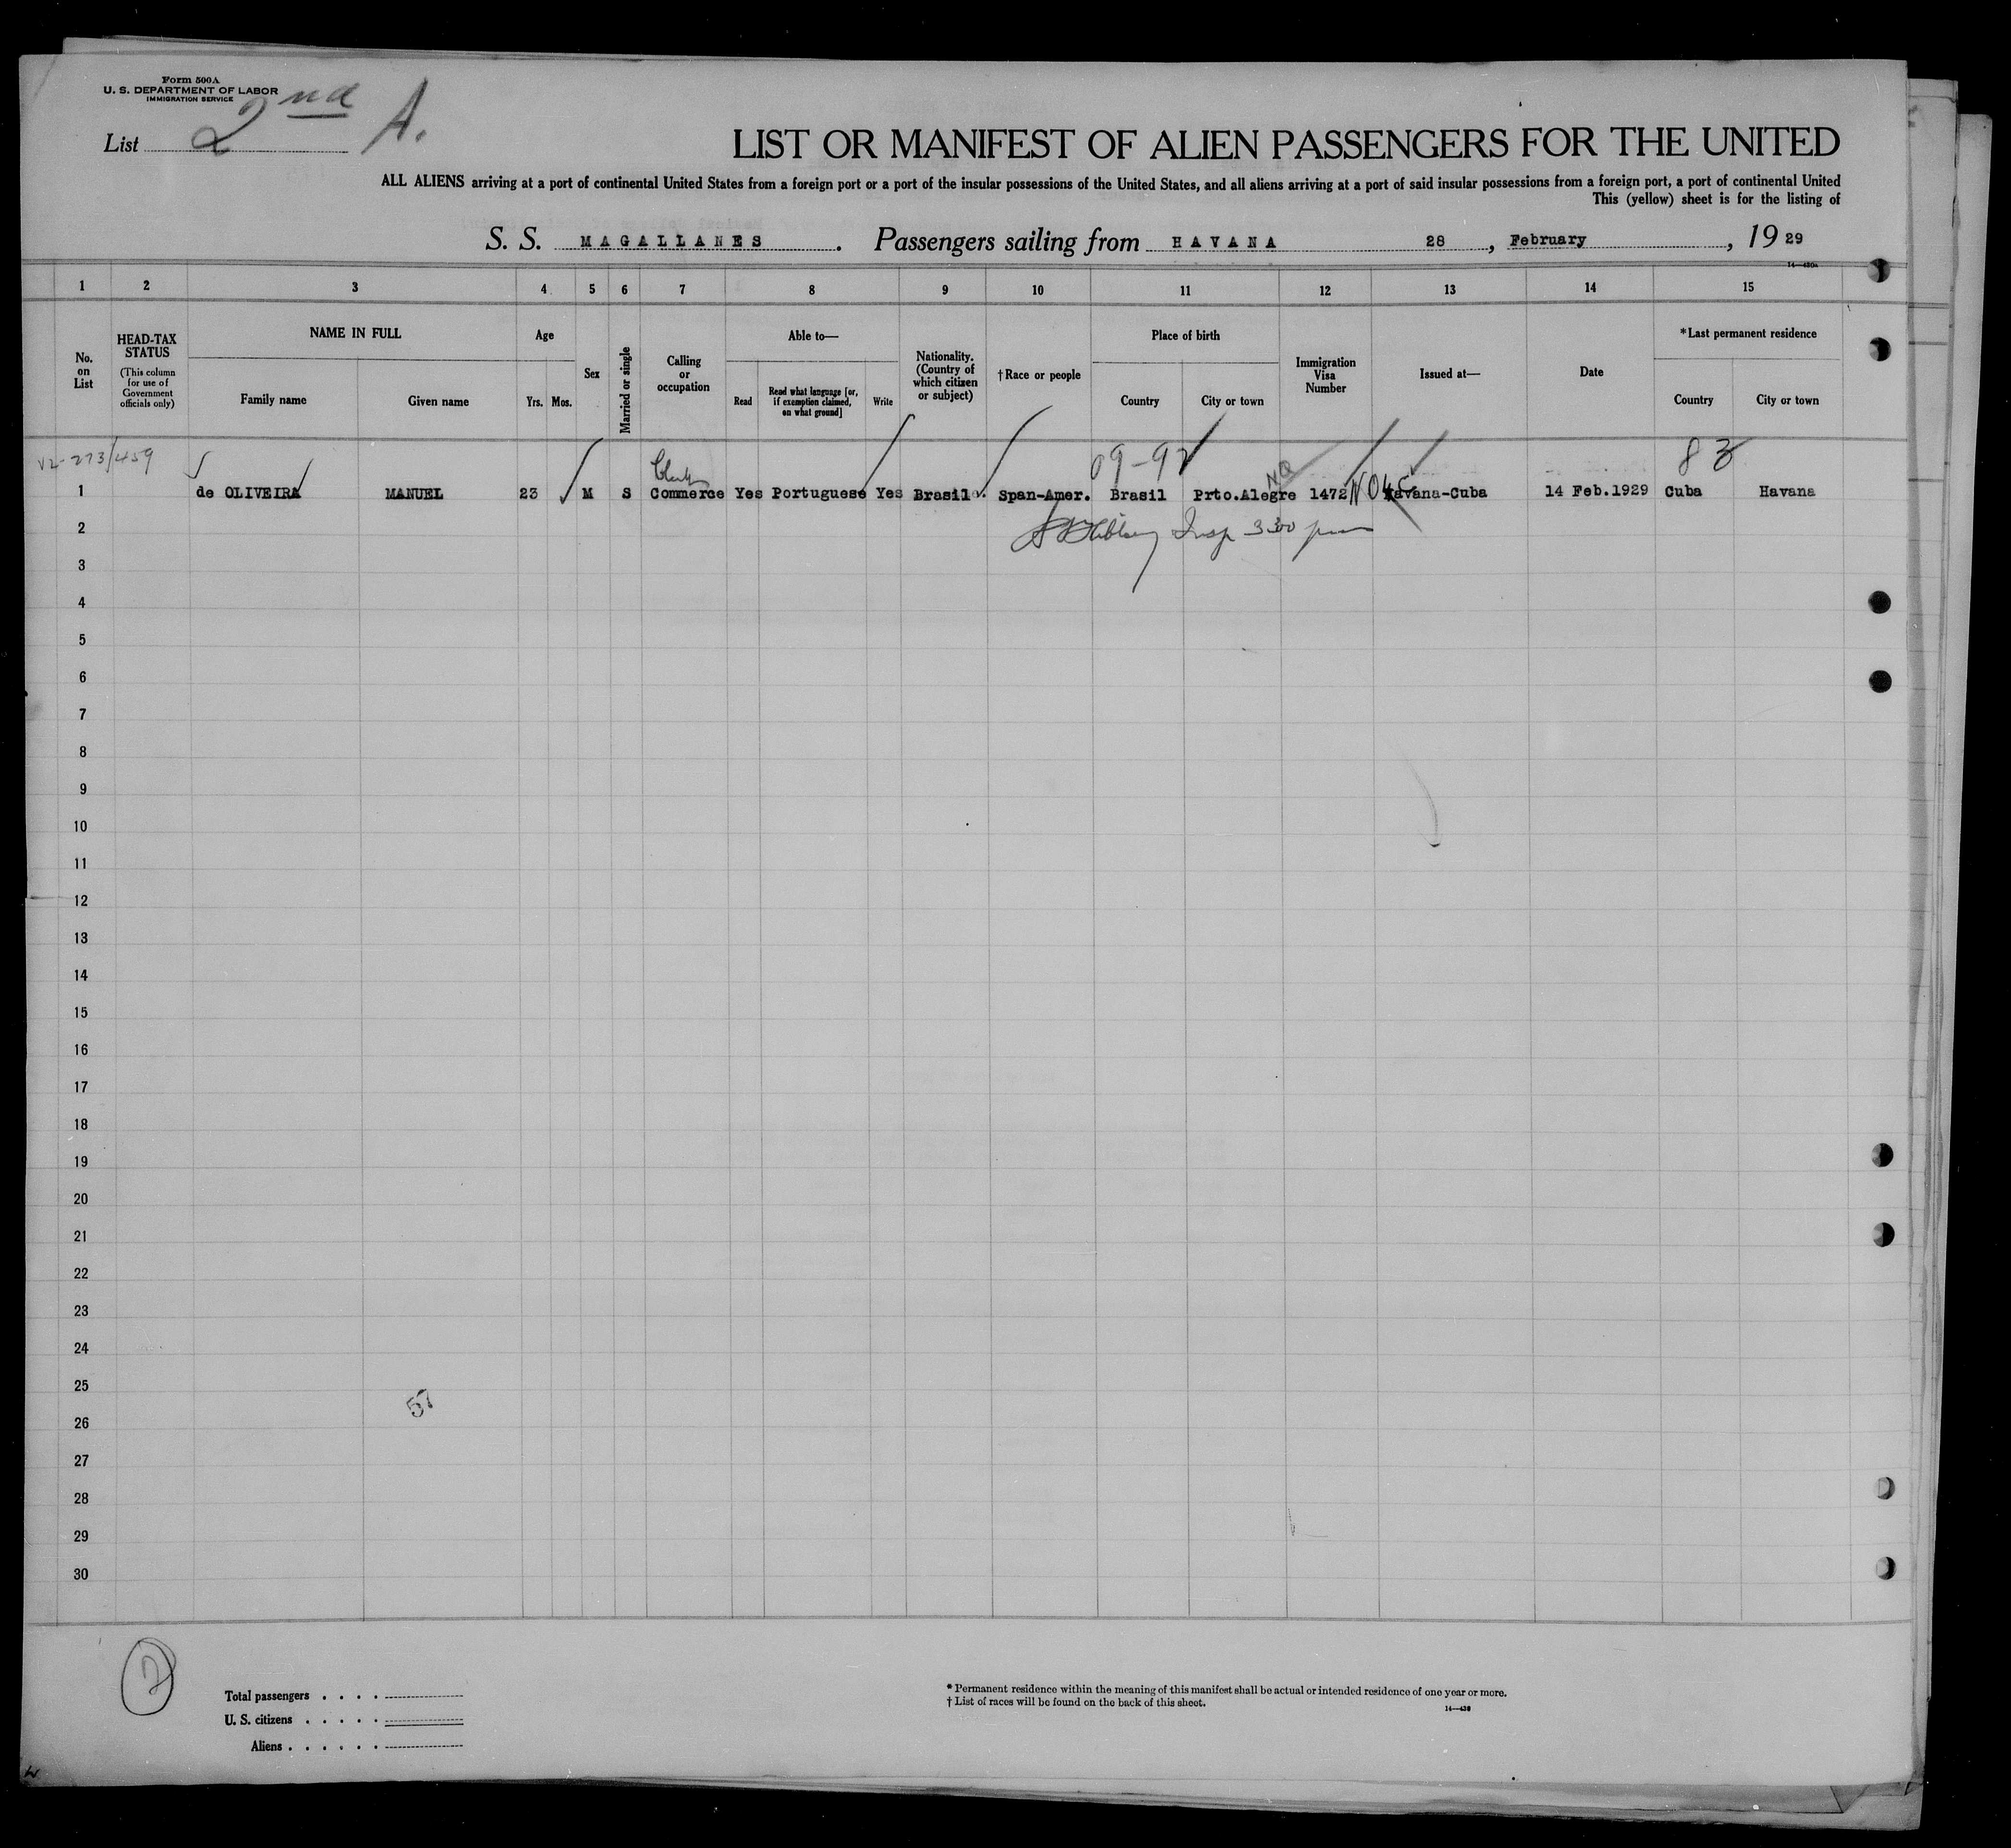 Form 500A
U. S. DEPARTMENT OF LABOR
IMMIGRATION SERVICE
List 2nd A.
LIST OR MANIFEST OF ALIEN PASSENGERS FOR THE UNITED
ALL ALIENS arriving at a port of continental United States from a foreign port or a port of the insular possessions of the United States, and all aliens arriving at a port of said insular possessions from a foreign port, a port of continental United
This (yellow) sheet is for the listing of
S. S. MAGALLANES. Passengers sailing from HAVANA 28, February, 19 29
1 2 3 4 5 6 7 8 9 10 11 12 13 14 15
No. on List
HEAD-TAX STATUS
(This column for use of Government officials only)
NAME IN FULL
Family name
Given name
Age
Yrs. Mos.
Sex
Married or single
Calling or occupation
Able to—
Read
Read what language [or, if exemption claimed, on what ground]
Write
Nationality. (Country of which citizen or subject)
†Race or people
Place of birth
Country
City or town
Immigration Visa Number
Issued at—
Date
*Last permanent residence
Country
City or town
V2-273/459
Clerk
09-92
NQ
83
1 de OLIVEIRA MANUEL 23 M S Commerce Yes Portuguese Yes Brasil. Span-Amer. Brasil Prto.Alegre 1472 Havana-Cuba 14 Feb.1929 Cuba Havana
2 Insp 3 30 pm
3
4
5
6
7
8
9
10
11
12
13
14
15
16
17
18
19
20
21
22
23
24
25
57
26
27
28
29
30
2
Total passengers . . . .
U. S. citizens . . . . .
Aliens . . . . . .
* Permanent residence within the meaning of this manifest shall be actual or intended residence of one year or more.
† List of races will be found on the back of this sheet.